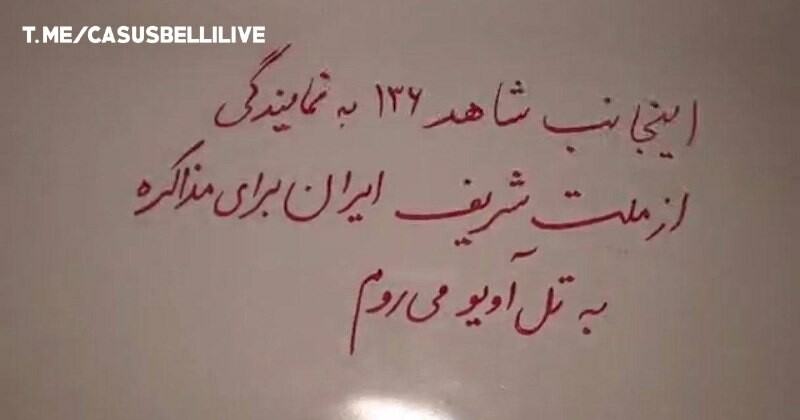 T.ME/CASUSBELLILIVE
اینجانب شاهد ۱۳۶ به نمایندگی
از ملت شریف ایران برای مذاکره
به تل آویو می روم